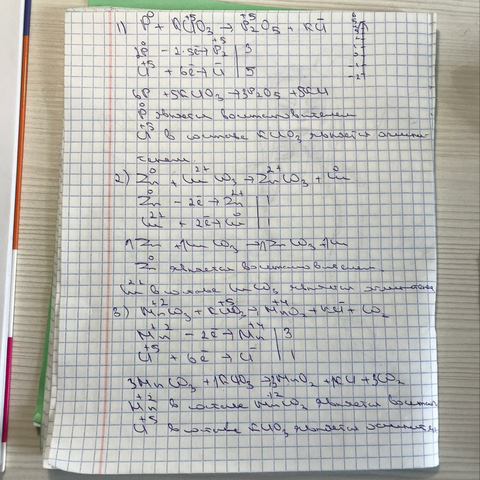 1) P⁰ + KCl⁺⁵O₃ → P₂⁺⁵O₅ + KCl⁻
2P⁰ - 2·5ē → P₂⁺⁵ | 3
Cl⁺⁵ + 6ē → Cl⁻ | 5
6P + 5KClO₃ → 3P₂O₅ + 5KCl
P⁰ является восстановителем
Cl⁺⁵ в составе KClO₃ является окисли-
телем.
2) Zn⁰ + Cu²⁺CO₃ → Zn²⁺CO₃ + Cu⁰
Zn⁰ - 2ē → Zn²⁺ | 1
Cu²⁺ + 2ē → Cu⁰ | 1
1Zn + 1CuCO₃ → 1ZnCO₃ + 1Cu
Zn⁰ является восстановителем.
Cu²⁺ в составе CuCO₃ является
3) Mn⁺²CO₃ + KCl⁺⁵O₃ → Mn⁺⁴O₂ + KCl⁻ + CO₂
Mn⁺² - 2ē → Mn⁺⁴ | 3
Cl⁺⁵ + 6ē → Cl⁻ | 1
3MnCO₃ + 1KClO₃ → 3MnO₂ + 1KCl + 3CO₂
Mn⁺² в составе Mn⁺²CO₃ является
Cl⁺⁵ в составе KClO₃ является